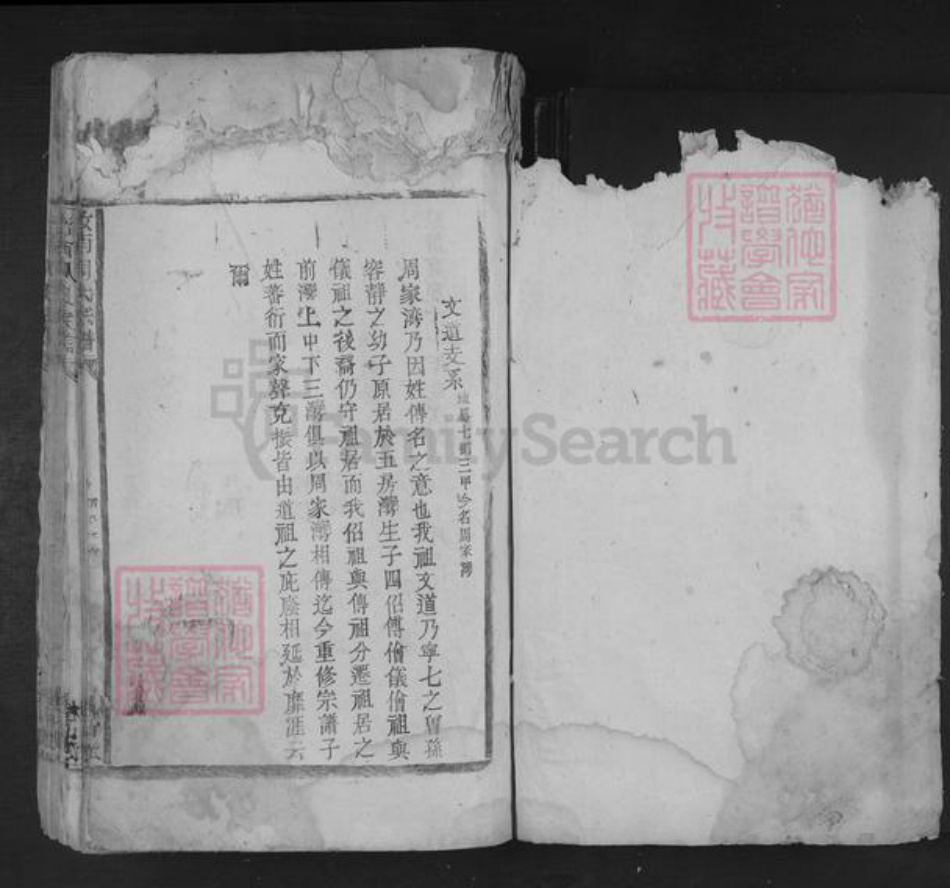 文道支系 地屬七都三甲今名周家灣
周家灣乃因姓傳名之意也我祖文道乃寧七之曾孫
容靜之幼子原居於五房灣生子四佋傳儈儀儈祖與
儀祖之後裔仍守祖居而我佋祖與傳祖分遷祖居之
前灣上中下三灣俱以周家灣相傳迄今重修宗譜子
姓蕃衍而家聲克振皆由道祖之庇廕相延於靡涯云
爾
周氏宗譜
譜學會
收藏
譜學會
收藏
FamilySearch